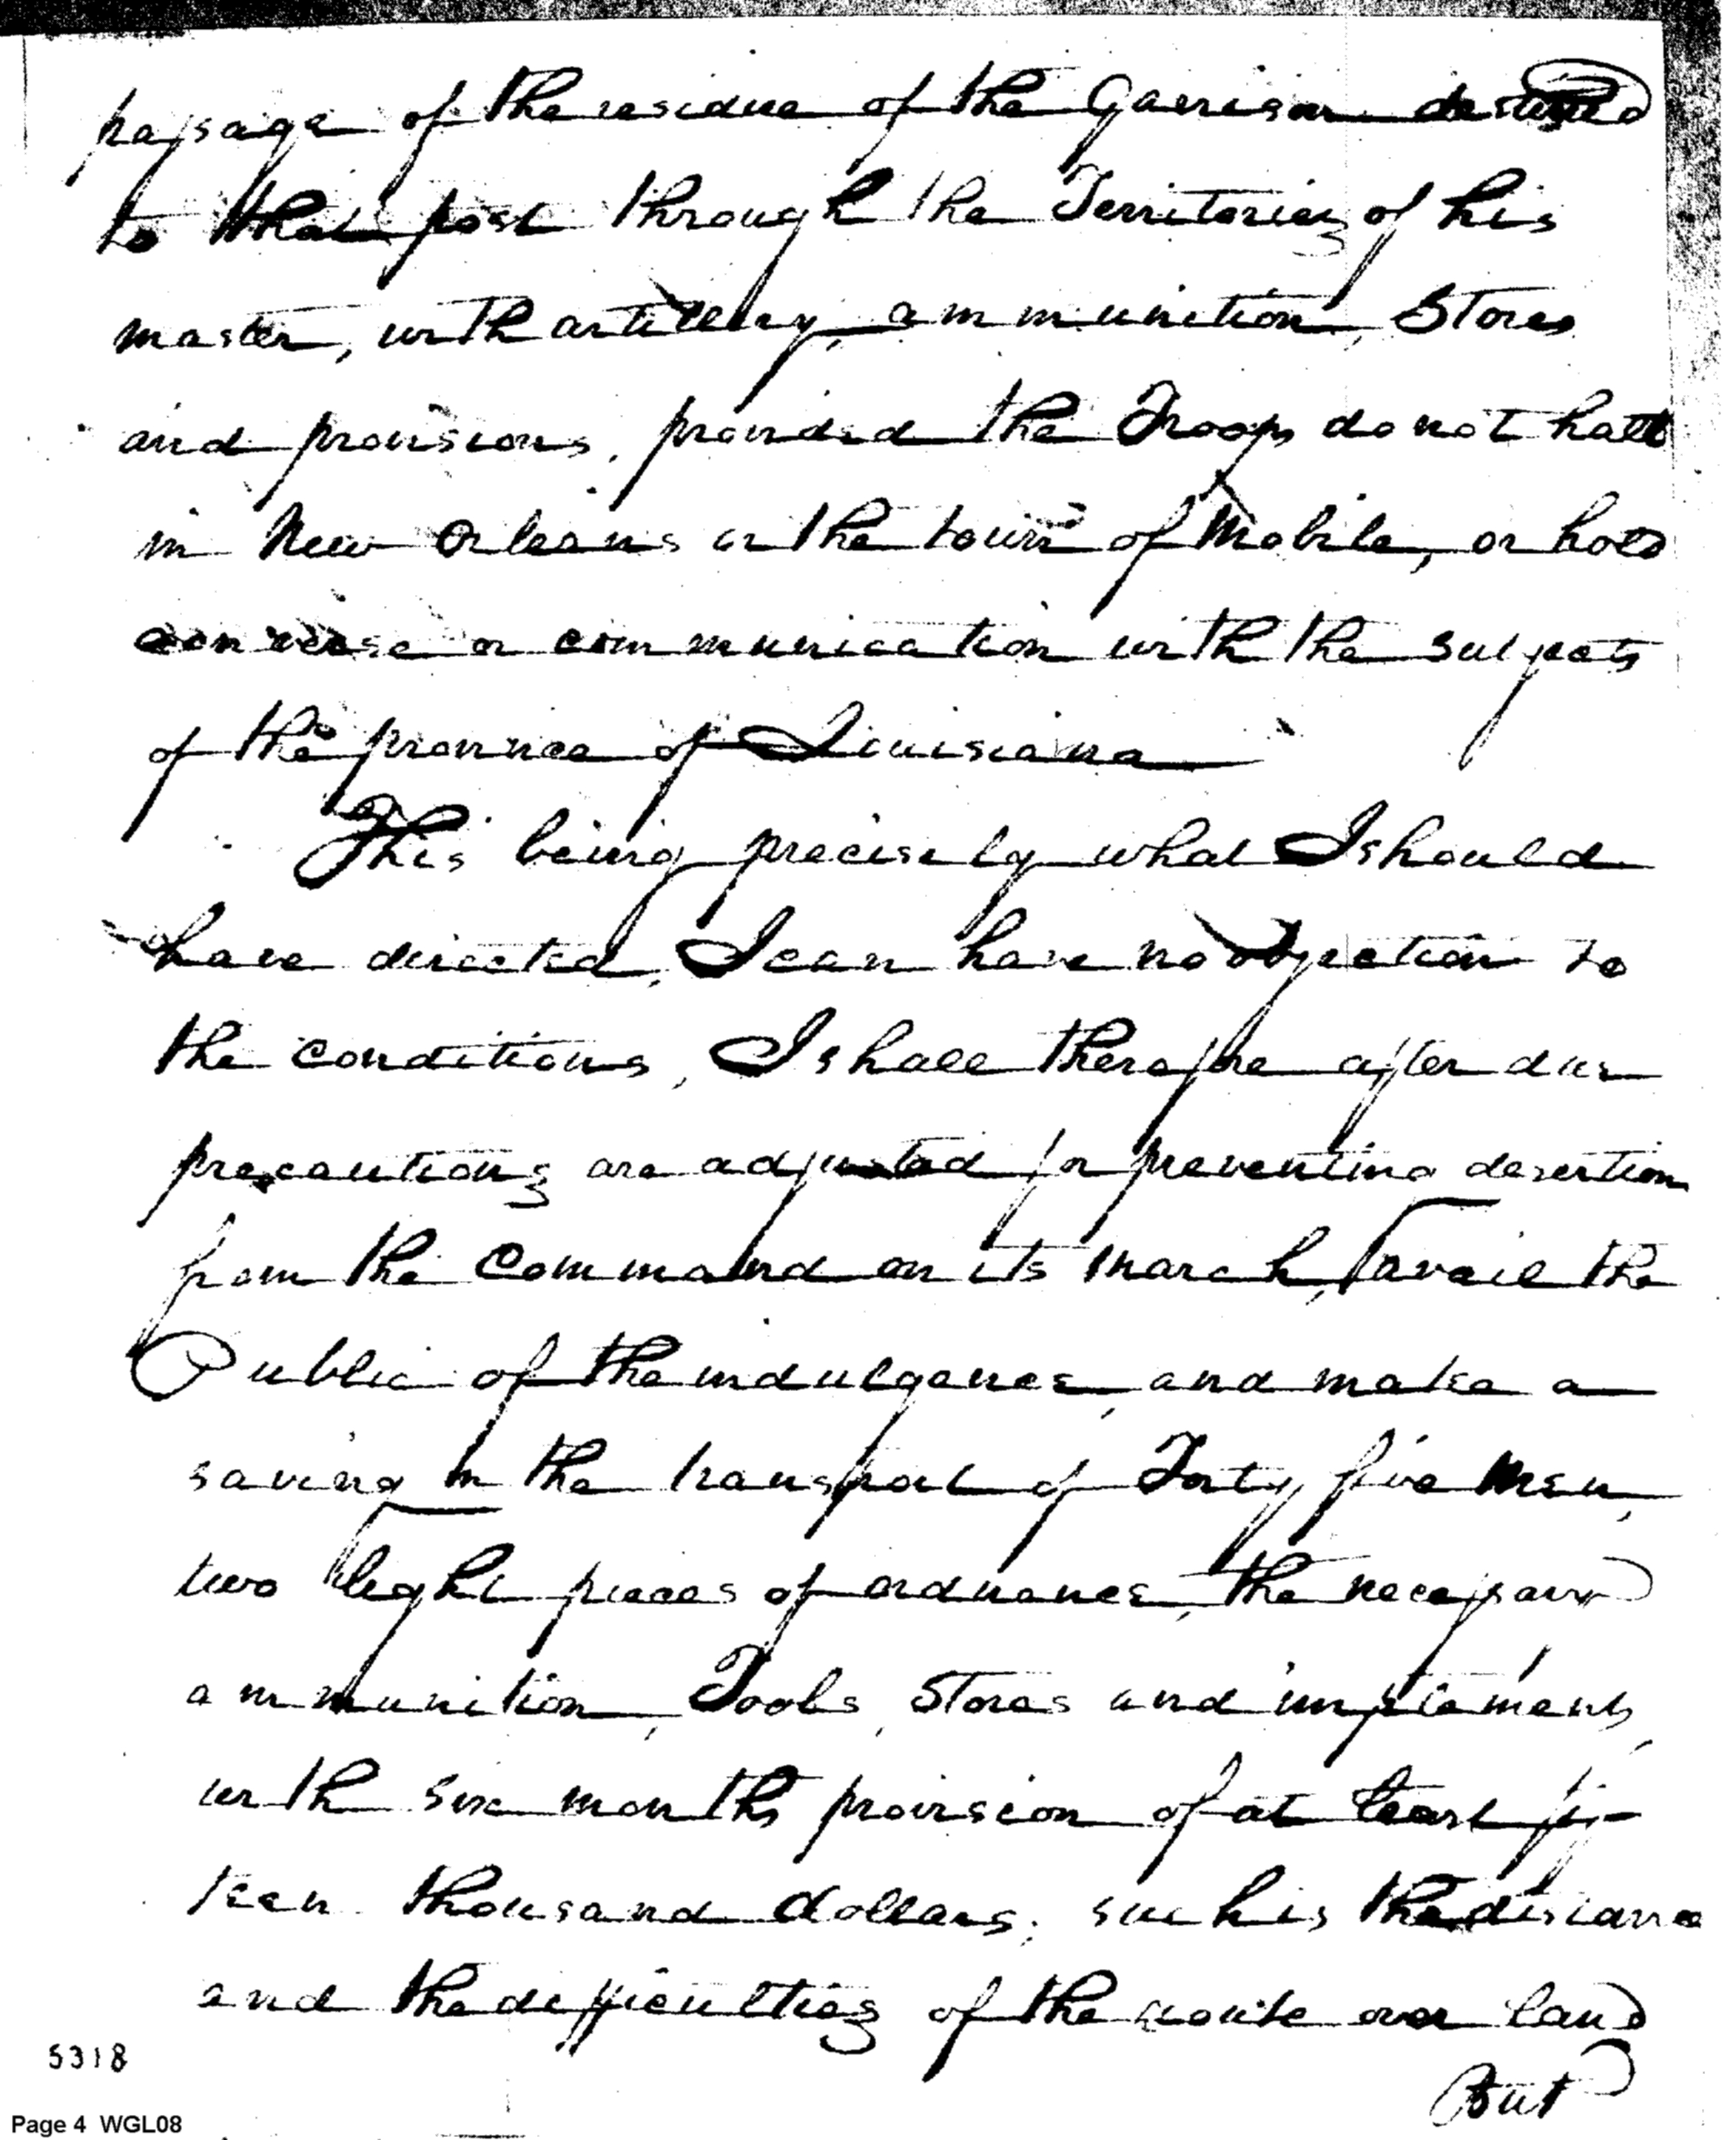 passage of the residue of the Garrison destined
to that post through the Territories of his
master, with artillery, ammunition, Stores
and provisions, provided the Troops do not halt
in New Orleans or the town of Mobile, or hold
converse or communication with the subjects
of the province of Louisiana
This being precisely what I should
have directed, I can have no objection to
the conditions, I shall therefore after due
precautions are adjusted for preventing desertion
from the Command on its march, avail the
Public of the indulgence, and make a
saving in the transport of Forty five men,
two light pieces of ordnance, the necessary
ammunition, Tools, Stores and implements,
with six months provision of at least fif-
teen thousand dollars; such is the distance
and the difficulties of the route over land
But
5318
Page 4 WGL08